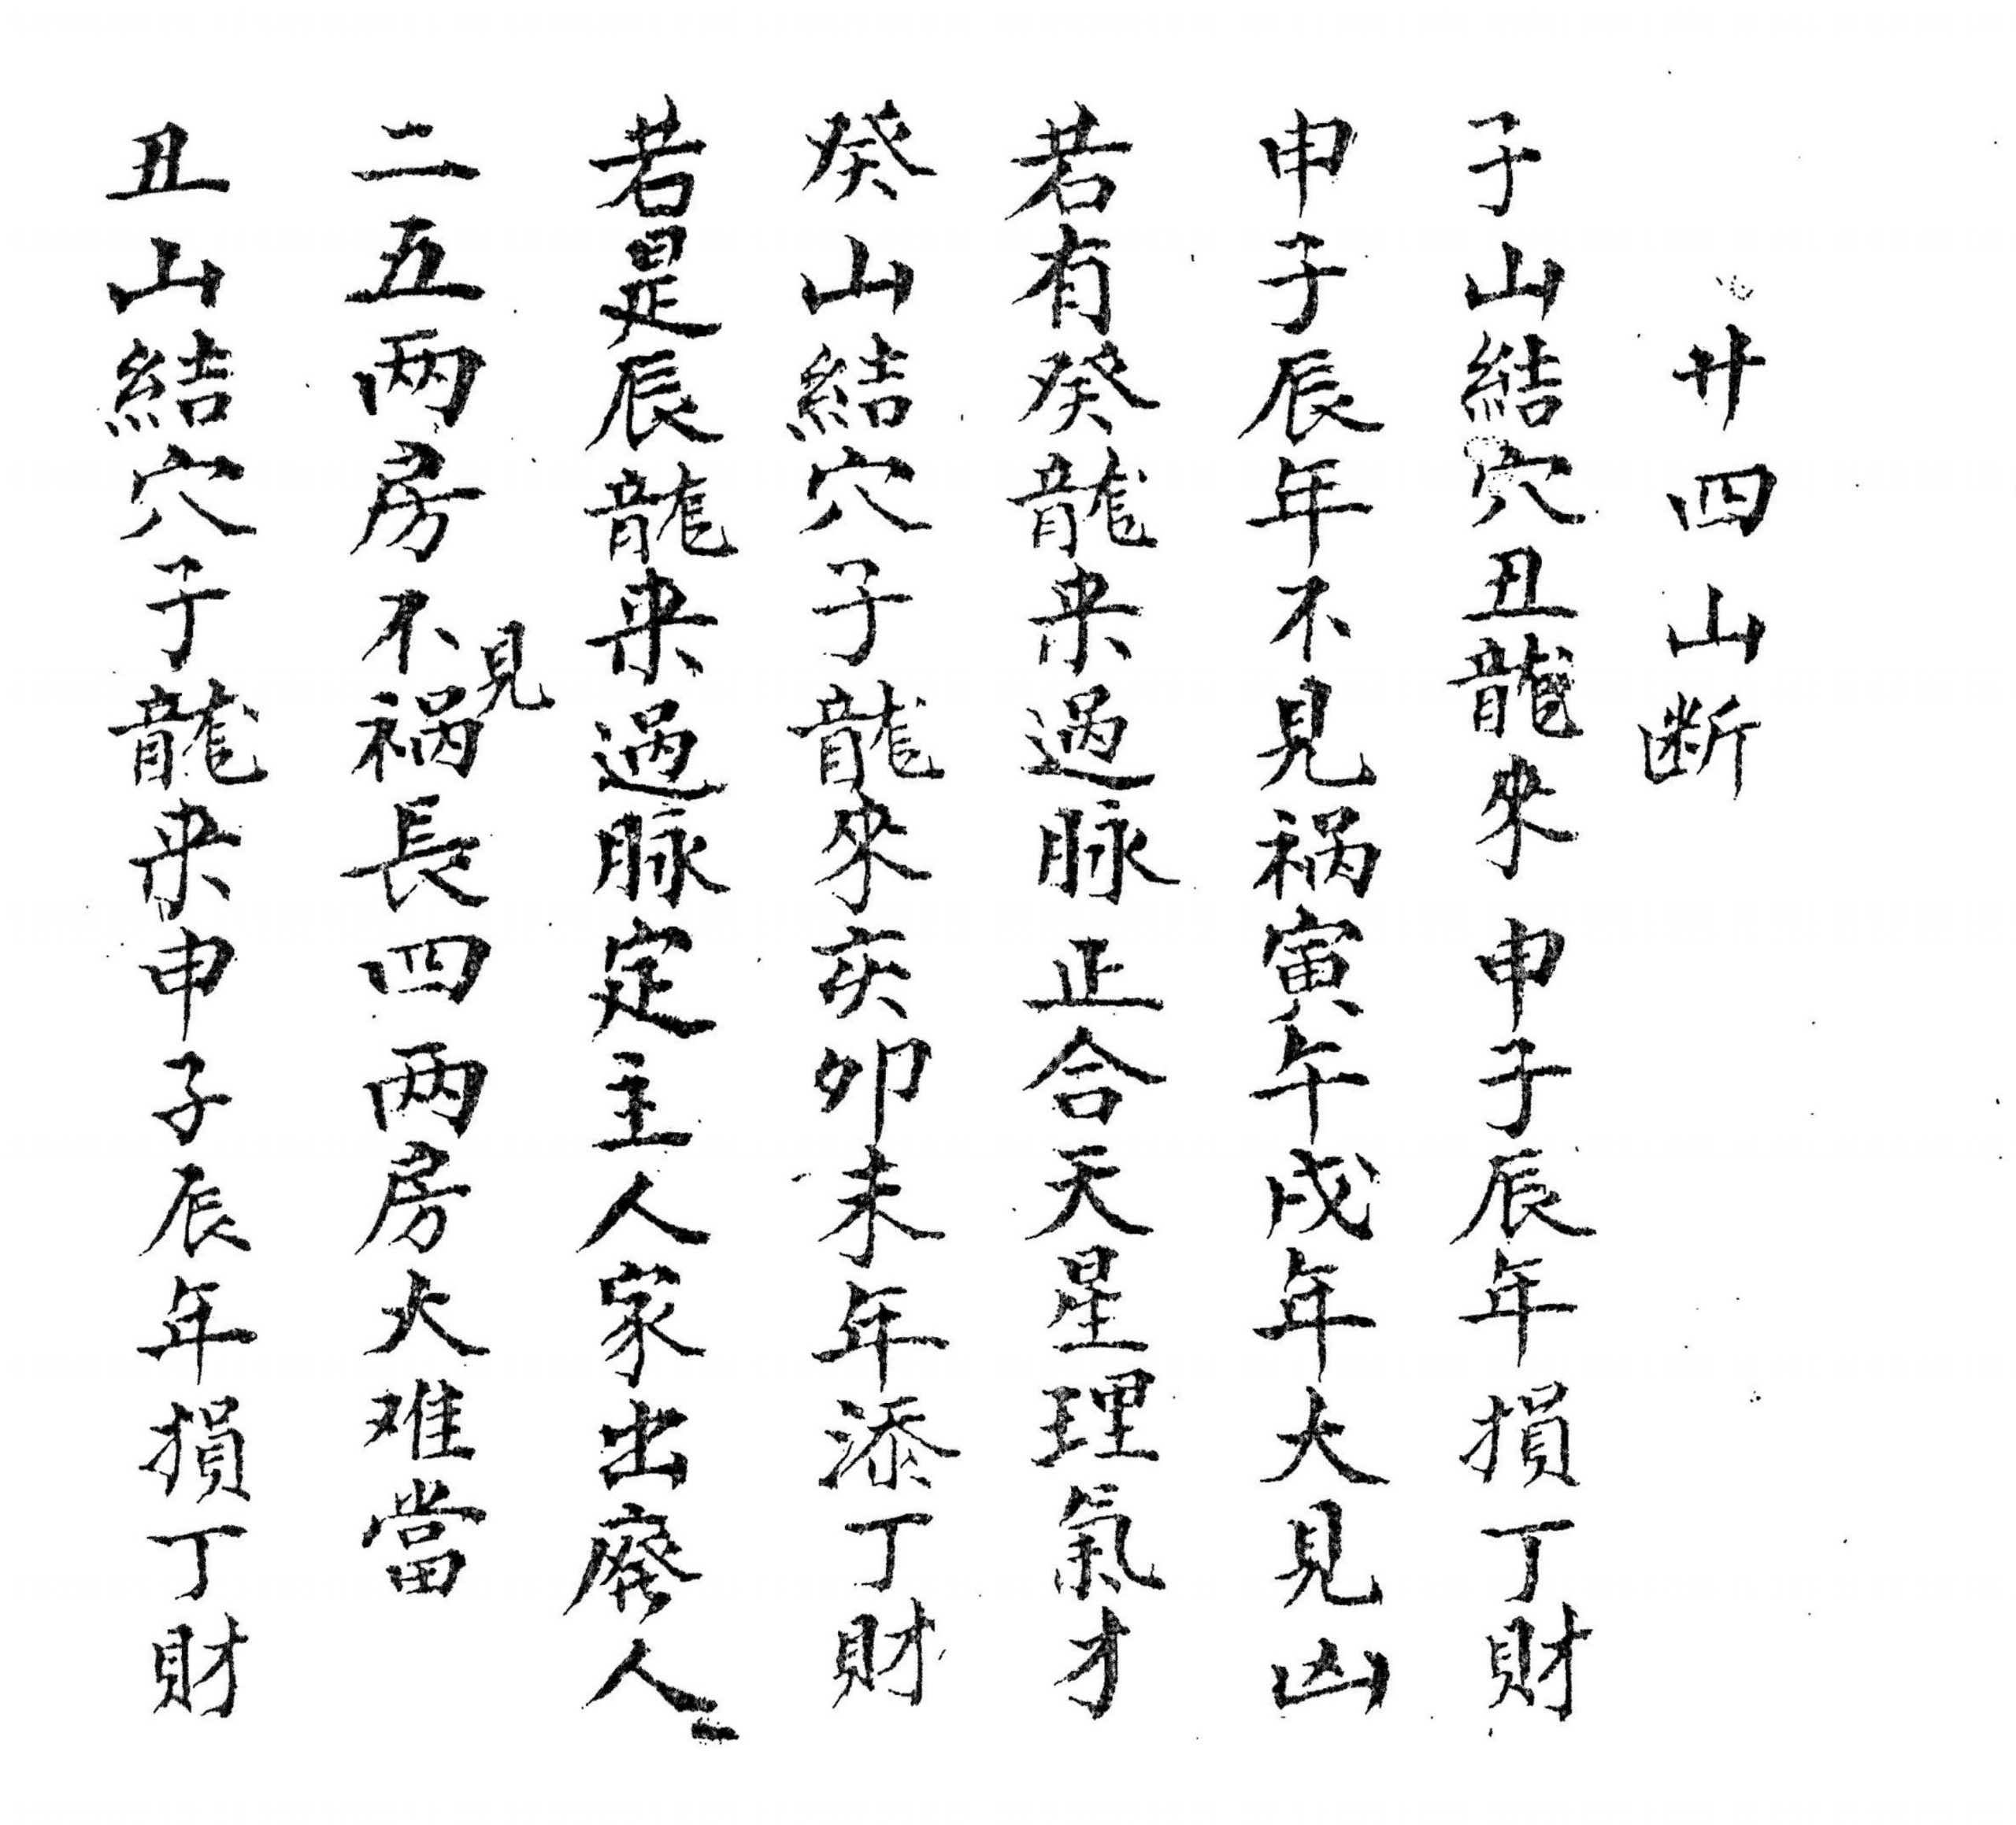 廿四山断
子山結穴丑龍來申子辰年損丁財
申子辰年不見禍寅午戌年大見凶
若有癸龍来過脉正合天星理氣才
癸山結穴子龍來亥卯未年添丁財
若是辰龍来過脉定主人家出廢人
二五两房不見禍長四两房大难當
丑山結穴子龍来申子辰年損丁財